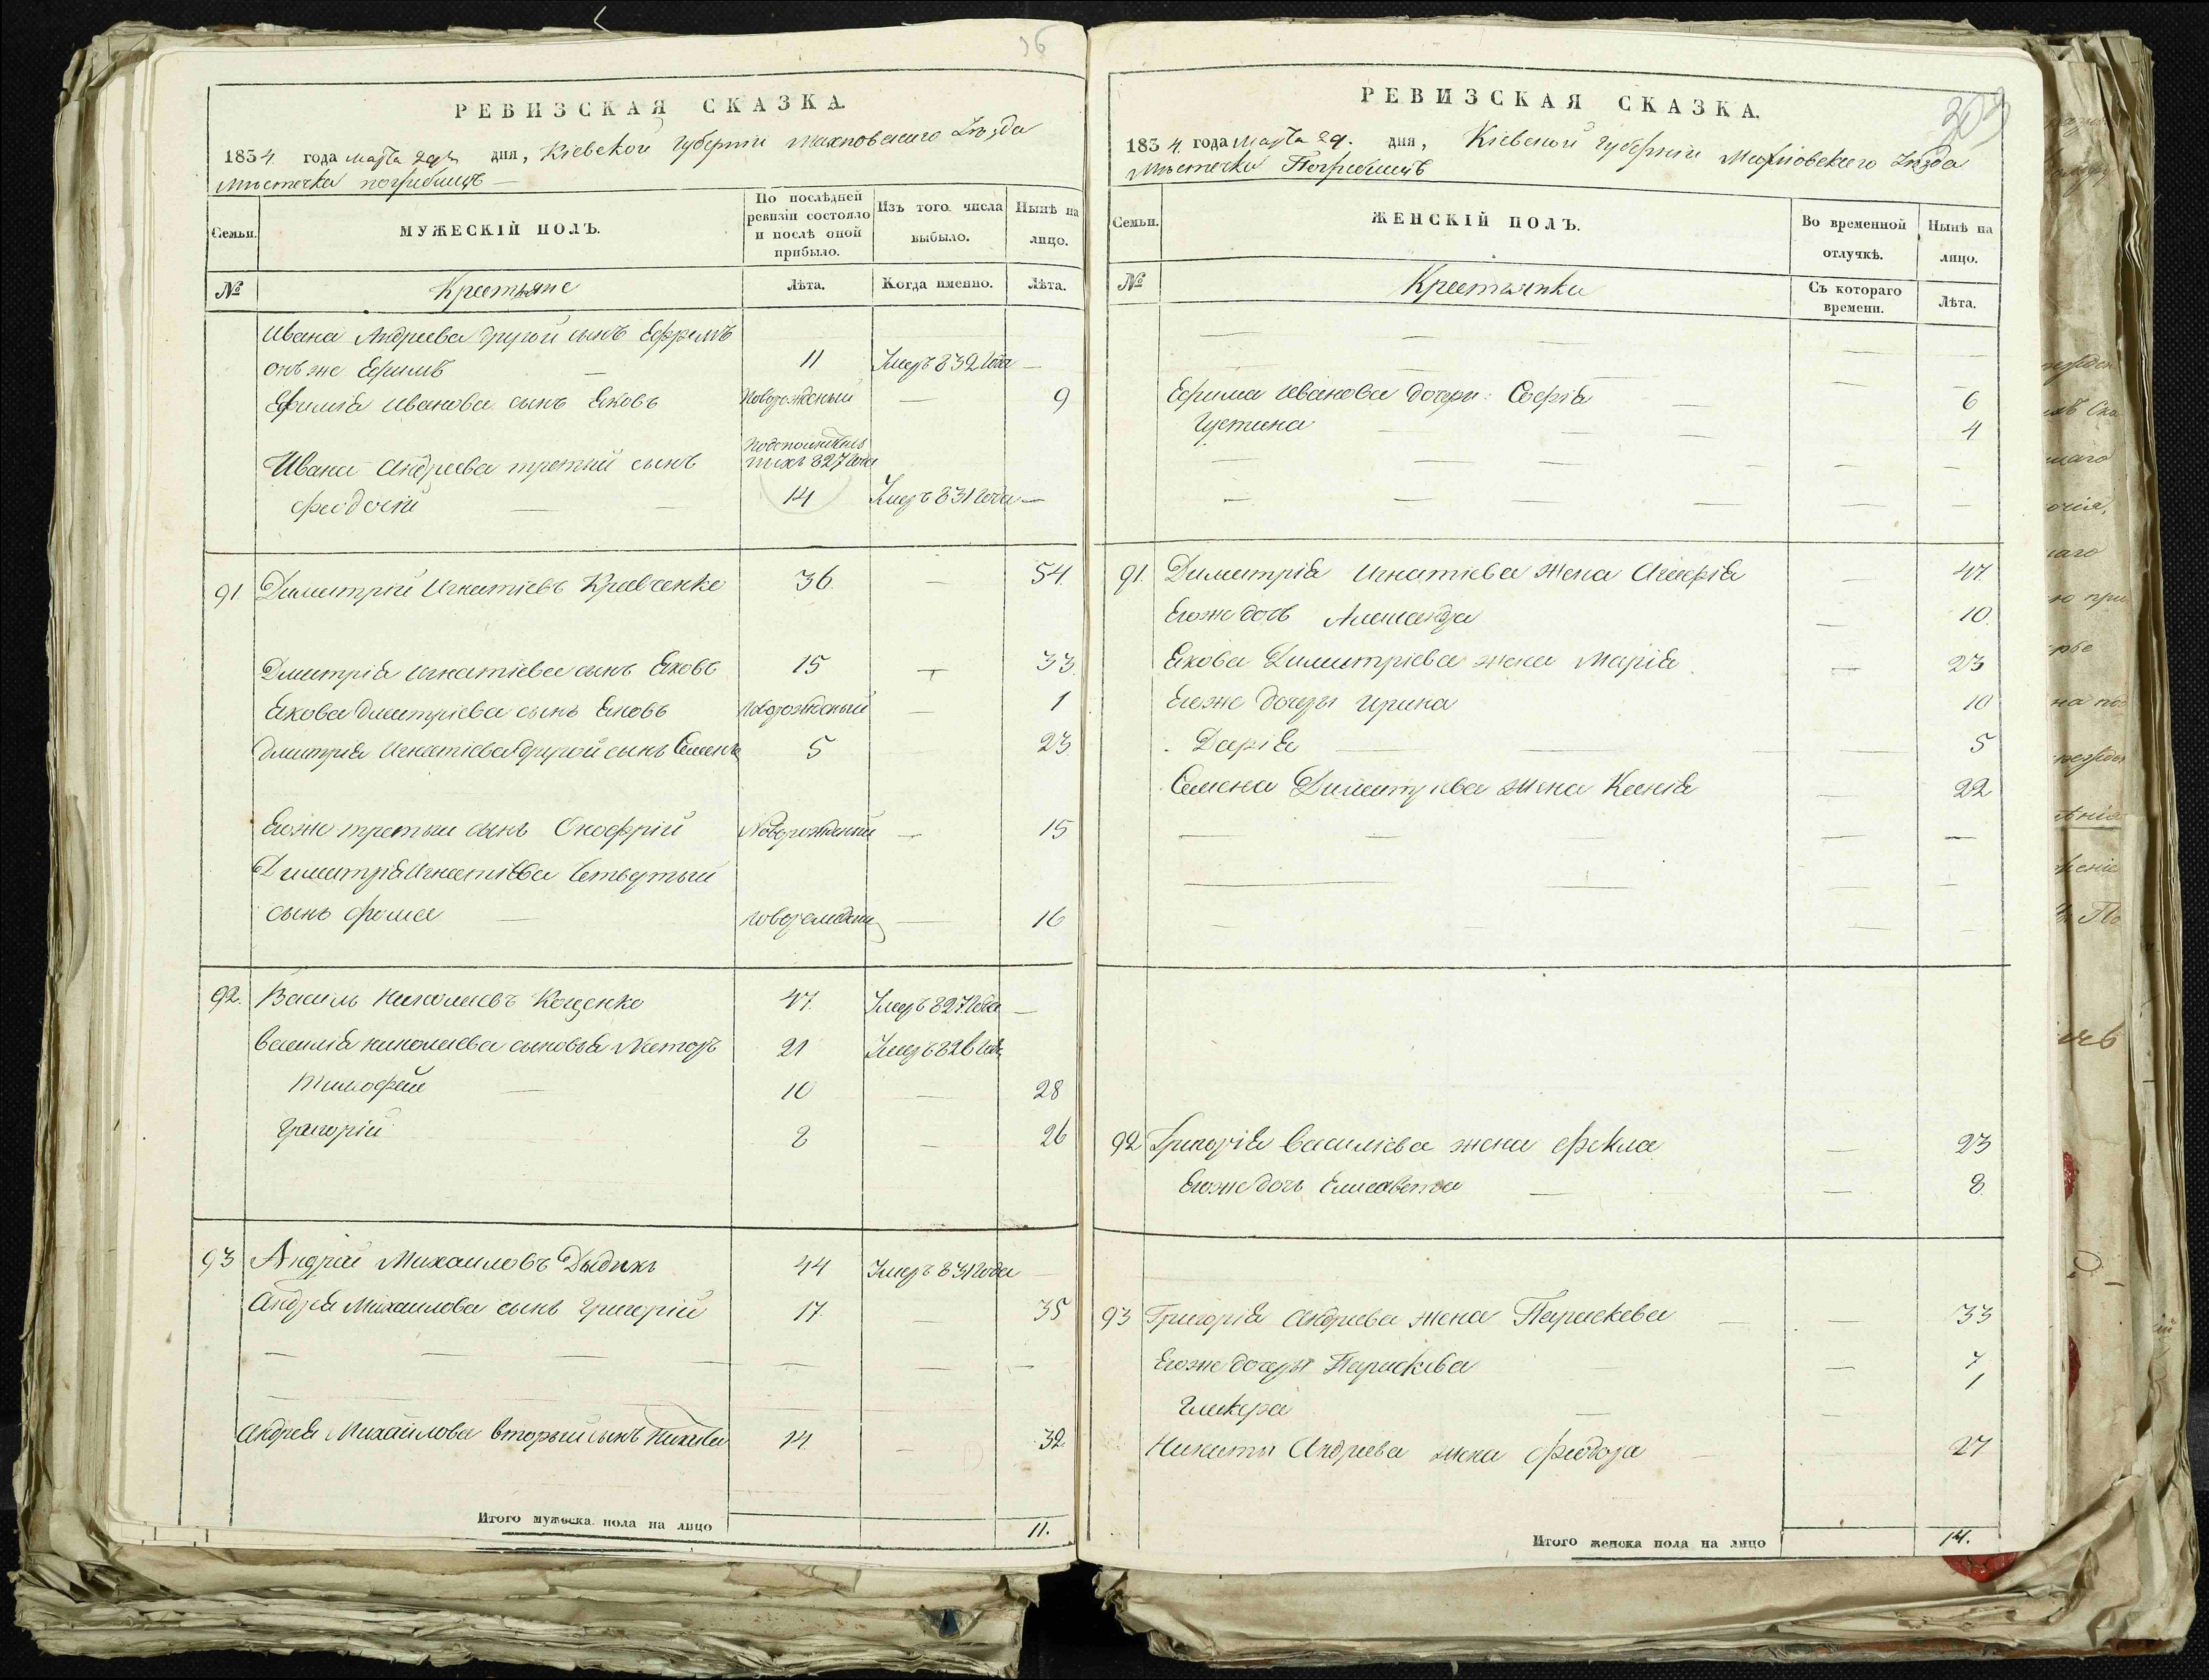 96
РЕВИЗСКАЯ СКАЗКА.
1834 года марта 29 дня, Кіевской Губерніи Махновскаго Уѣзда
Мѣстечка Погребищъ
Семьи.
МУЖЕСКІЙ ПОЛЪ.
По послѣдней ревизіи состояло и послѣ оной прибыло.
Изъ того числа выбыло.
Нынѣ на лицо.
№
Крестьяне
Лѣта.
Когда именно.
Лѣта.
Ивана Андреева другой сынъ Ефримъ
онъ же Ефимъ — 11 Умеръ 832 года —
Ефимія Иванова сынъ Яковъ Новорожденый — 9
Ивана Андреева третій сынъ
827 года
Феодосій — — 14 Умеръ 831 года —
91 Димитрій Игнатіевъ Кравченко 36. — 54.
Дмитрія Игнатіева сынъ Яковъ 15 — 33.
Якова Дмитріева сынъ Яковъ Новорожденый — 1
Дмитрія Игнатіева другой сынъ Семенъ 5 23.
Егоже третій сынъ Онофрій Новорожденый — 15
Димитрія Игнатіева Четвертый
сынъ Фома — новорожденый — 16
92. Василь Николаевъ Коценко 47. Умеръ 827 года —
Василія Николаева сыновья Нестеръ 21 Умеръ 826 года
Тимофей — 10 — 28
Григорій 8 — 26
93 Андрей Михаиловъ Дыдикъ 44 Умеръ 831 года —
Андрея Михаилова сынъ Григорій 17. — 35
— — — — — — —
Андрея Михайлова вторый сынъ Никита 14 — 32
Итого мужеска пола на лицо 11.
309
РЕВИЗСКАЯ СКАЗКА.
1834 года Марта 29. дня, Кіевской Губерніи Махновскаго Уѣзда
Мѣстечка Погребищъ
Семьи.
ЖЕНСКІЙ ПОЛЪ.
Во временной отлучкѣ.
Нынѣ на лицо.
№
Крестьянки
Съ котораго времени.
Лѣта.
Ефима Иванова дочери: Софія — — 6
Устина — — — 4
91. Димитрія Игнатіева жена Агафія — 47
Егоже дочь Александра — 10.
Якова Димитріева жена Марія — 23
Егоже дочеры Ирина 10
Дарія — — — 5
Семена Димитріева жена Ксенія — 22
92 Григорія Василіева жена Фекла — 23
Егоже дочь Елисавета — — 8.
93 Григорія Андреева жена Параскева — — 33
Егоже дочеры Параскева — 7
Гликера — — 1
Никиты Андреева жена Феодора — 27
Итого женска пола на лицо 14.